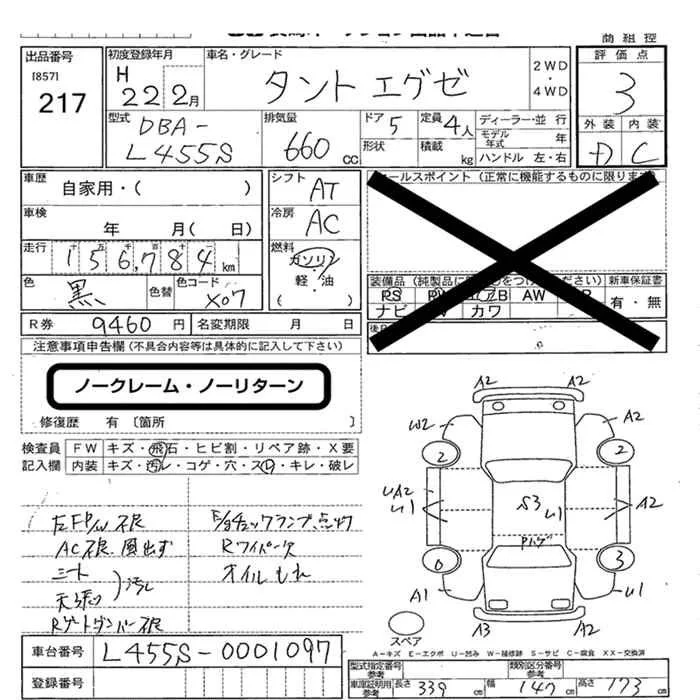 商組控
出品番号
[857]
217
初度登録年月
H
22 2月
車名・グレード
タント エグゼ
2WD
・
4WD
評価点
3
外装 内装
D C
型式
DBA-
L455S
排気量
660 CC
ドア 5
形状
定員 4人
積載 kg
ディーラー・並 行
モデル年式 年
ハンドル 左・右
車歴
自家用・( )
車検
年 月( 日)
走行
156,784 km
色
黒
色替
色コード
X07
シフト
AT
冷房
AC
燃料
ガソリン
軽・油
( )
セールスポイント(正常に機能するものに限ります)
装備品 (純製品に をつけてください) 新車保証書
PS AW
ナビ カワ
有・無
R券 9460 円 名変期限 月 日
注意事項申告欄 (不具合内容等は具体的に記入して下さい)
ノークレーム・ノーリターン
修復歴 有 〔箇所 〕
検査員 FW キズ・飛石・ヒビ割・リペア跡・X要
記入欄 内装 キズ・汚レ・コゲ・穴・スレ・キレ・破レ
左FP/W不良
AC不良 風出ず
シート
天張り
汚れ
Rゲートダンパー不良
E/gチェックランプ点灯
Rワイパー欠
オイルもれ
A2
A2
W2
A2
2
2
UA2
U1
S3
U1
A2
Pハゲ
0
3
A1
U1
A3
A2
スペア
A-キズ E-エクボ U-凹み W-補修跡 S-サビ C-腐食 XX-交換済
車台番号 L455S-0001097
登録番号
型式指定番号参考
類別区分番号参考
車庫証明用参考 長さ 339 cm 幅 147 cm 高さ 173 cm